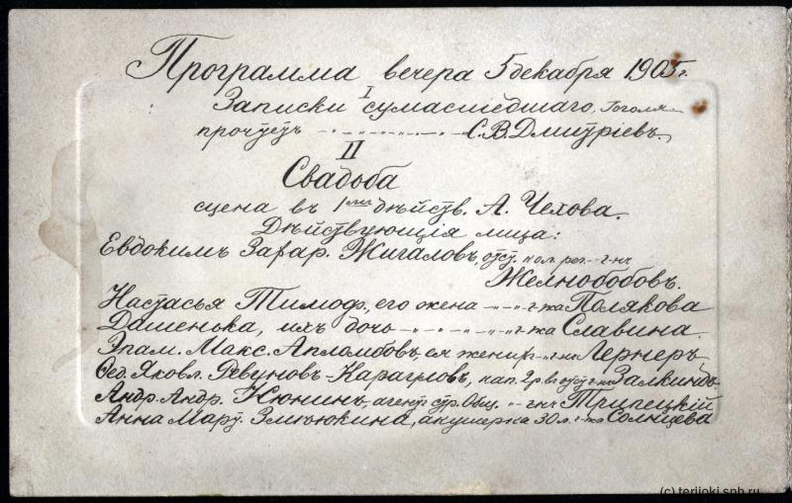 Программа вечера 5 декабря 1905 г.
I
Записки сумасшедшаго. Гоголя
прочтетъ С. В. Дмитріевъ.
II
Свадьба
сцена въ 1мъ дѣйств. А. Чехова.
Дѣйствующія лица:
Евдокимъ Захар. Жигаловъ, отст. кол. рег. - г-нъ
Желнобобовъ.
Настасья Тимоф., его жена - г-жа Полякова
Дашенька, ихъ дочь - г-жа Славина
Эпам. Макс. Апломбовъ, ея женихъ - г-нъ Лернеръ
Ѳед. Яковл. Ревуновъ-Карауловъ, кап. 2 р. въ отст. г-нъ Залкиндъ.
Андр. Андр. Нюнинъ, агентъ стр. Общ. - г-нъ Трипецкій
Анна Март. Змеюкина, акушерка 30 л. г-жа Солнцева
(c) terijoki.spb.ru